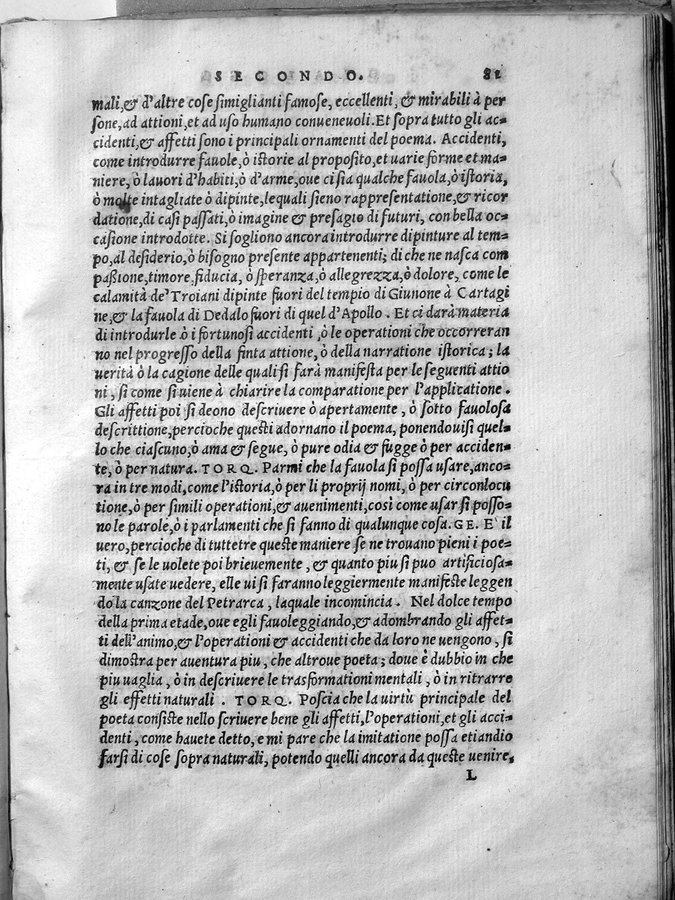 SECONDO. 81
mali,& d'altre cose simiglianti famose, eccellenti, & mirabili à per
sone, ad attioni, et ad uso humano conueneuoli. Et sopra tutto gli ac=
cidenti, & affetti sono i principali ornamenti del poema. Accidenti,
come introdurre fauole, ò istorie al proposito, et uarie forme et ma=
niere, ò lauori d'habiti, ò d'arme, oue ci sia qualche fauola, ò istoria,
ò molte intagliate ò dipinte, lequali sieno rappresentatione, & ricor
datione, di casi passati, ò imagine & presagio di futuri, con bella oc=
casione introdotte. Si sogliono ancora introdurre dipinture al tem=
po, al desiderio, ò bisogno presente appartenenti; di che ne nasca com
passione, timore, fiducia, ò speranza, ò allegrezza, ò dolore, come le
calamità de' Troiani dipinte fuori del tempio di Giunone à Cartagi
ne, & la fauola di Dedalo fuori di quel d'Apollo. Et ci darà materia
di introdurle ò i fortunosi accidenti, ò le operationi che occorreran
no nel progresso della finta attione, ò della narratione istorica; la
uerità ò la cagione delle quali si farà manifesta per le seguenti attio
ni, si come si uiene à chiarire la comparatione per l'applicatione.
Gli affetti poi si deono descriuere ò apertamente, ò sotto fauolosa
descrittione, percioche questi adornano il poema, ponendouisi quel=
lo che ciascuno, ò ama & segue, ò pure odia & fugge ò per acciden=
te, ò per natura. TORQ. Parmi che la fauola si possa usare, anco=
ra in tre modi, come l'istoria, ò per li proprij nomi, ò per circonlocu
tione, ò per simili operationi, & auenimenti, così come usar si posso=
no le parole, ò i parlamenti che si fanno di qualunque cosa. GE. E' il
uero, percioche di tuttetre queste maniere se ne trouano pieni i poe=
ti, & se le uolete poi brieuemente, & quanto piu si puo artificiosa=
mente usate uedere, elle ui si faranno leggiermente manifeste leggen
do la canzone del Petrarca, laquale incomincia. Nel dolce tempo
della prima etade, oue egli fauoleggiando, & adombrando gli affet=
ti dell'animo, & l'operationi & accidenti che da loro ne uengono, si
dimostra per auentura piu, che altroue poeta; doue è dubbio in che
piu uaglia, ò in descriuere le trasformationi mentali, ò in ritrarre
gli effetti naturali. TORQ. Poscia che la uirtù principale del
poeta consiste nello scriuere bene gli affetti, l'operationi, et gli acci=
denti, come hauete detto, e mi pare che la imitatione possa etiandio
farsi di cose sopra naturali, potendo quelli ancora da queste uenire,
L